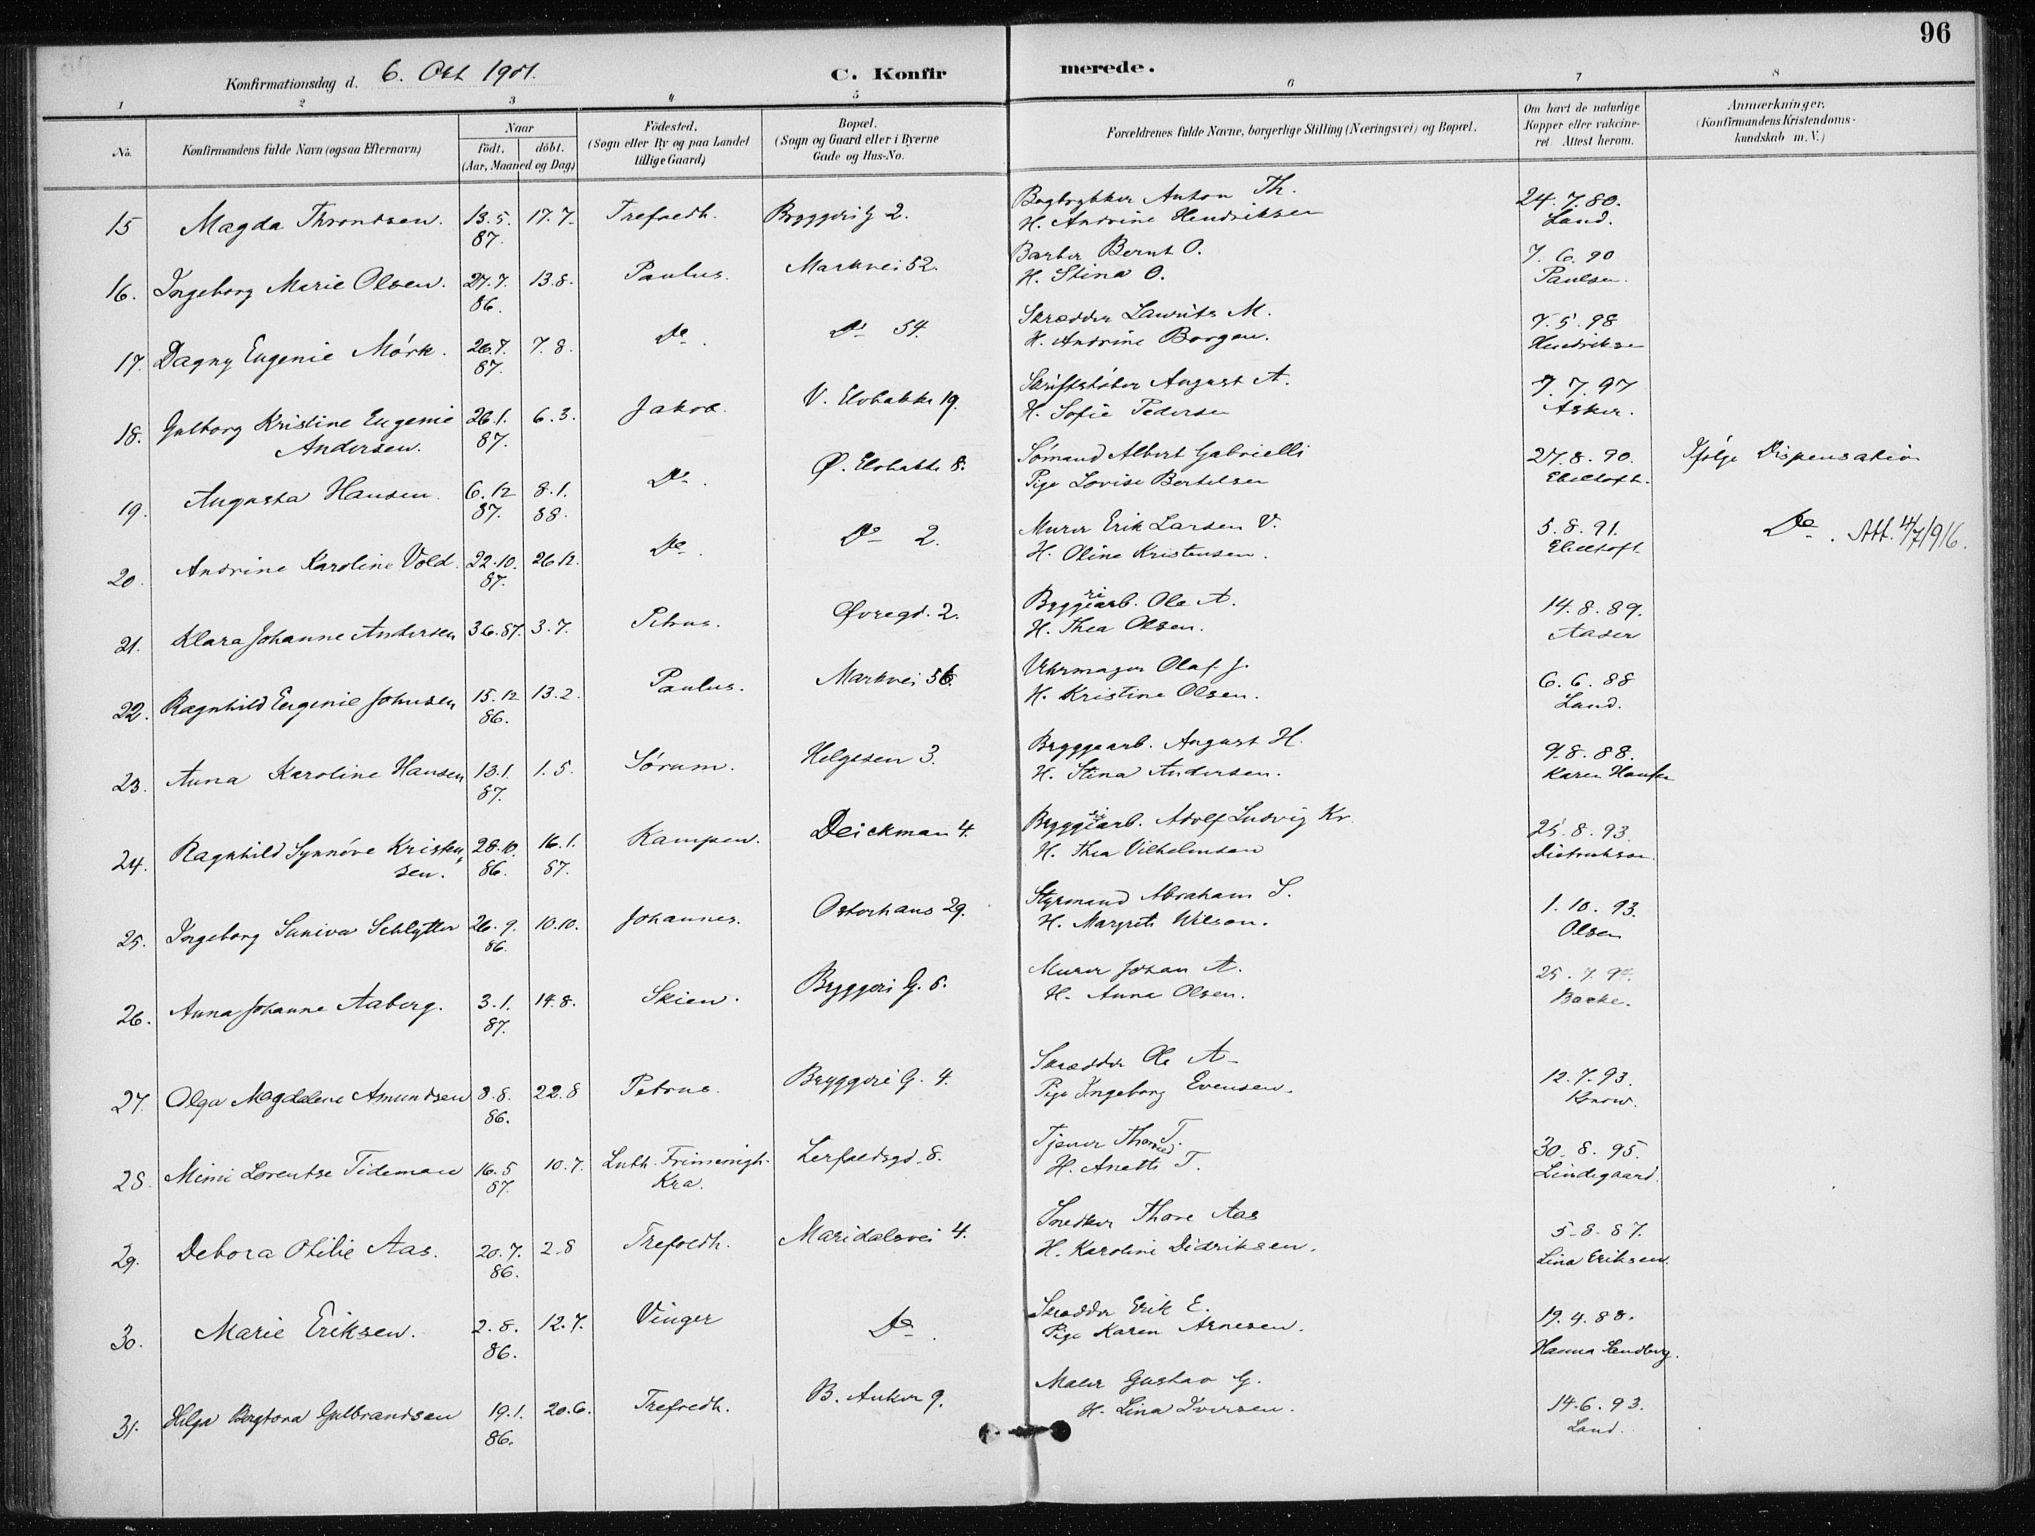 96
Konfirmationsdag d. 6. Okt 1901.
C. Konfirmerede.
1 2 3 4 5 6 7 8
No.
Konfirmandens fulde Navn (ogsaa Efternavn)
Naar
födt. döbt.
(Aar, Maaned og Dag)
Födested.
(Sogn eller By og paa Landet
tillige Gaard)
Bopæl.
(Sogn og Gaard eller i Byerne
Gade og Hus-No.
Forældrenes fulde Navne, borgerlige Stilling (Næringsvei) og Bopæl.
Om havt de naturlige
Kopper eller vakcine-
ret. Attest herom.
Anmærkninger.
(Konfirmandens Kristendoms-
kundskab m. V.)
15 Magda Throndsen. 13.5. 87. 17.7. Trefoldh. Bryggeri G 2. Bogtrykker Anton Th.
H. Andrine Hendriksen 24.7.80. Land.
16. Ingeborg Marie Olsen. 27.7. 86. 13.8. Paulus. Markvei 52. Barber Bernt O.
H. Stina O. 7.6.90 Paulsen.
17. Dagny Eugenie Mörk. 26.7. 87. 7.8. Do. Do 54. Skrædder Laurits M.
H. Andrine Borgen. 7.5.98 Hendriksen
18. Gulborg Kristine Eugenie
Andersen. 26.1. 87. 6.3. Jakob. V. Elvbakke 19. Skriftstøber August A.
H. Sofie Pedersen 7.7.97 Asker.
19. Augusta Hansen. 6.12 87. 8.1. 88. Do. Ø. Elvbakke 8. Sømand Albert Gabrielli
Pige Lovise Bertelsen 27.8.90. Ebeltoft. Ifølge Dispensation
20. Andrine Karoline Vold. 22.10. 87. 26.12. Do. Do 2. Murer Erik Larsen V.
H. Oline Kristensen. 5.8.91. Ebeltoft Do. Att. 4/7/916.
21. Klara Johanne Andersen 3.6.87. 3.7. Petrus. Øvregd. 2. Bryggeriarb. Ole A.
H. Thea Olsen. 14.8.89. Aaser
22. Ragnhild Eugenie Johnsen 15.12 86. 13.2. Paulus. Markvei 56. Uhrmager Olaf J.
H. Kristine Olsen. 6.6.88 Land.
23. Anna Karoline Hansen 13.1. 87. 1.5. Sørum. Helgesen 3. Bryggearb. August H.
H. Stina Andersen. 9.8.88. Karen Hansen
24. Ragnhild Synnøve Kristen-
sen. 28.10. 86. 16.1. 87. Kampen. Deickman 4. Bryggeriarb. Adolf Ludvig Kr.
H. Thea Vilhelmsen 25.8.93. Dietrichson.
25. Ingeborg Suniva Schlytter 26.9. 86. 10.10. Johannes. Osterhaus 29. Styrmand Abraham S.
H. Margrete Wilson. 1.10.93. Olsen
26. Anna Johanne Aaberg. 3.1. 87. 14.8. Skien. Bryggeri G. 6. Murer Johan A.
H. Anna Olsen. 25.7. Backe.
27. Olga Magdalene Amundsen 8.8. 86. 22.8 Petrus. Bryggeri G. 4. Skrædder Ole A.
Pige Ingeborg Evensen. 12.7.93. Konow.
28. Mimi Lorentse Tideman 16.5 87. 10.7. Luth. Frimenigh.
Kra. Lerfaldsgd. 8. Tjener T.
H. Anette T. 30.8.95. Lindegaard.
29. Debora Otilie Aas. 20.7. 86. 2.8 Trefoldh. Maridalsvei 4. Snedker Thore Aas
H. Karoline Didriksen. 5.8.87. Lina Eriksen.
30. Marie Eriksen. 2.8. 86. 12.7. Vinger Do. Skrædder Erik E.
Pige Karen Arnesen. 19.4.88. Hanna Sundberg.
31. Helga Bergtora Gulbrandsen 19.1. 86. 20.6. Trefoldh. B. Anker 9. Maler Gustav G.
H. Lina Iversen. 14.6.93. Land.